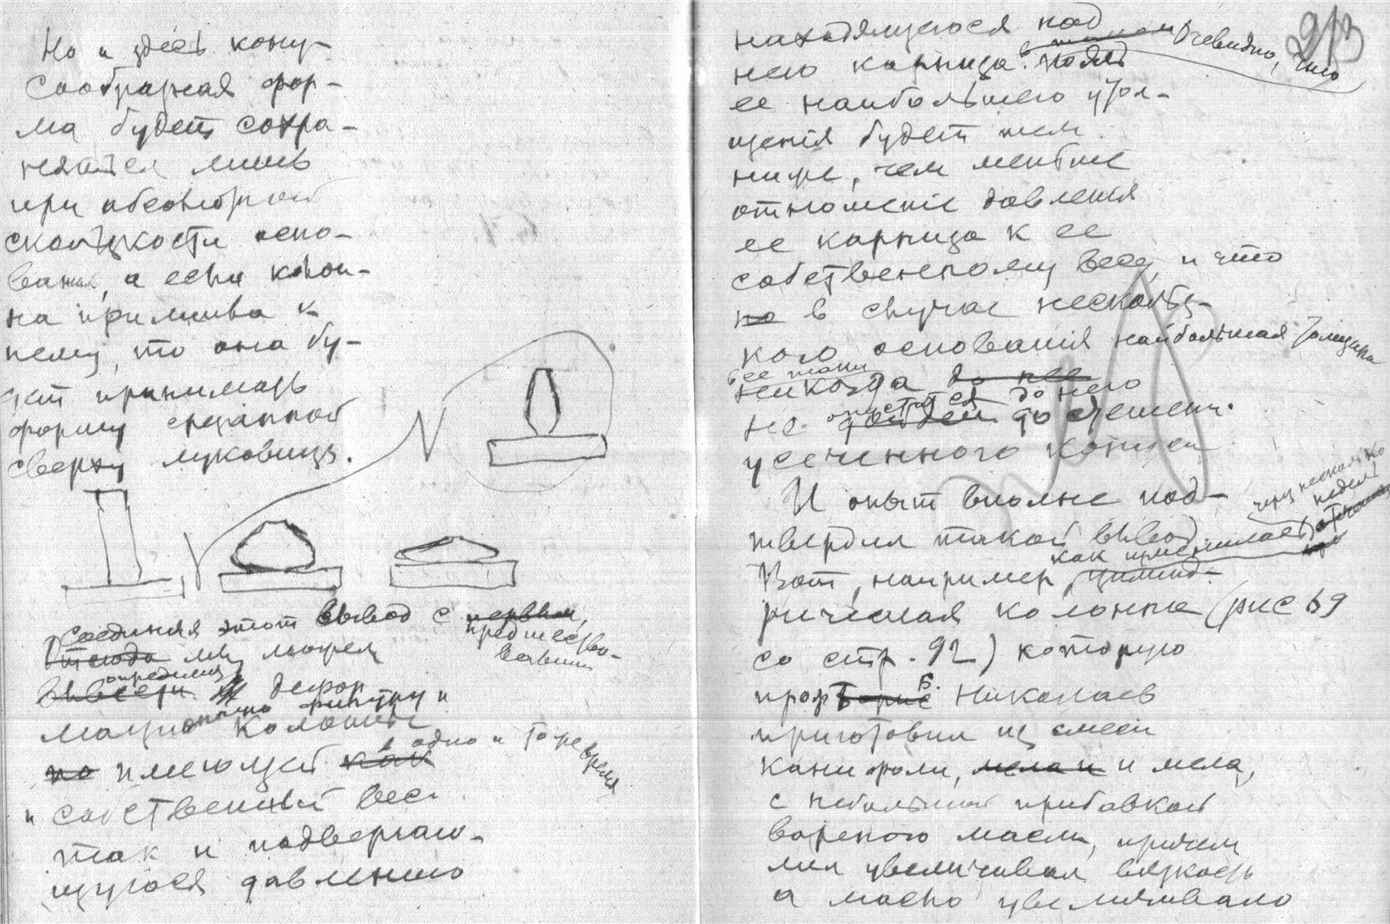 Но и здесь кону-
сообразная фор-
ма будет сохра-
няться лишь
при абсолютной
скользкости осно-
вания, а если колон-
на прилипла к
нему, то она бу-
дет принимать
форму срезанной
сверху луковицы.
Соединяя этот вывод с первым,
предшество-
вавшим
Отсюда мы можем
определить
вывести дефор
мацию колонны
имеющей как в одно и то же время
и собственный вес
так и подвергаю-
щуюся давлению
213
находящегося над
нею карниза. Очевидно, что
ее наибольшего утол-
щения будет тем
ниже, чем меньше
отношение давления
ее карниза к ее
собственному весу, и что
но в случае нескольз-
кого основания наибольшая толщина
никогда до нее
не опустится до него
усеченного конуса
И опыт вполне под-
твердил такой вывод
через несколько
недель
Вот, например, как изменилась цилинд-
рическая колонна (рис 69
со стр. 92) которую
проф Б. Николаев
приготовил из смеси
канифоли, мела и и мела,
с небольшой прибавкой
вареного масла, причем
мел увеличивал вязкость
а масло увеличивало